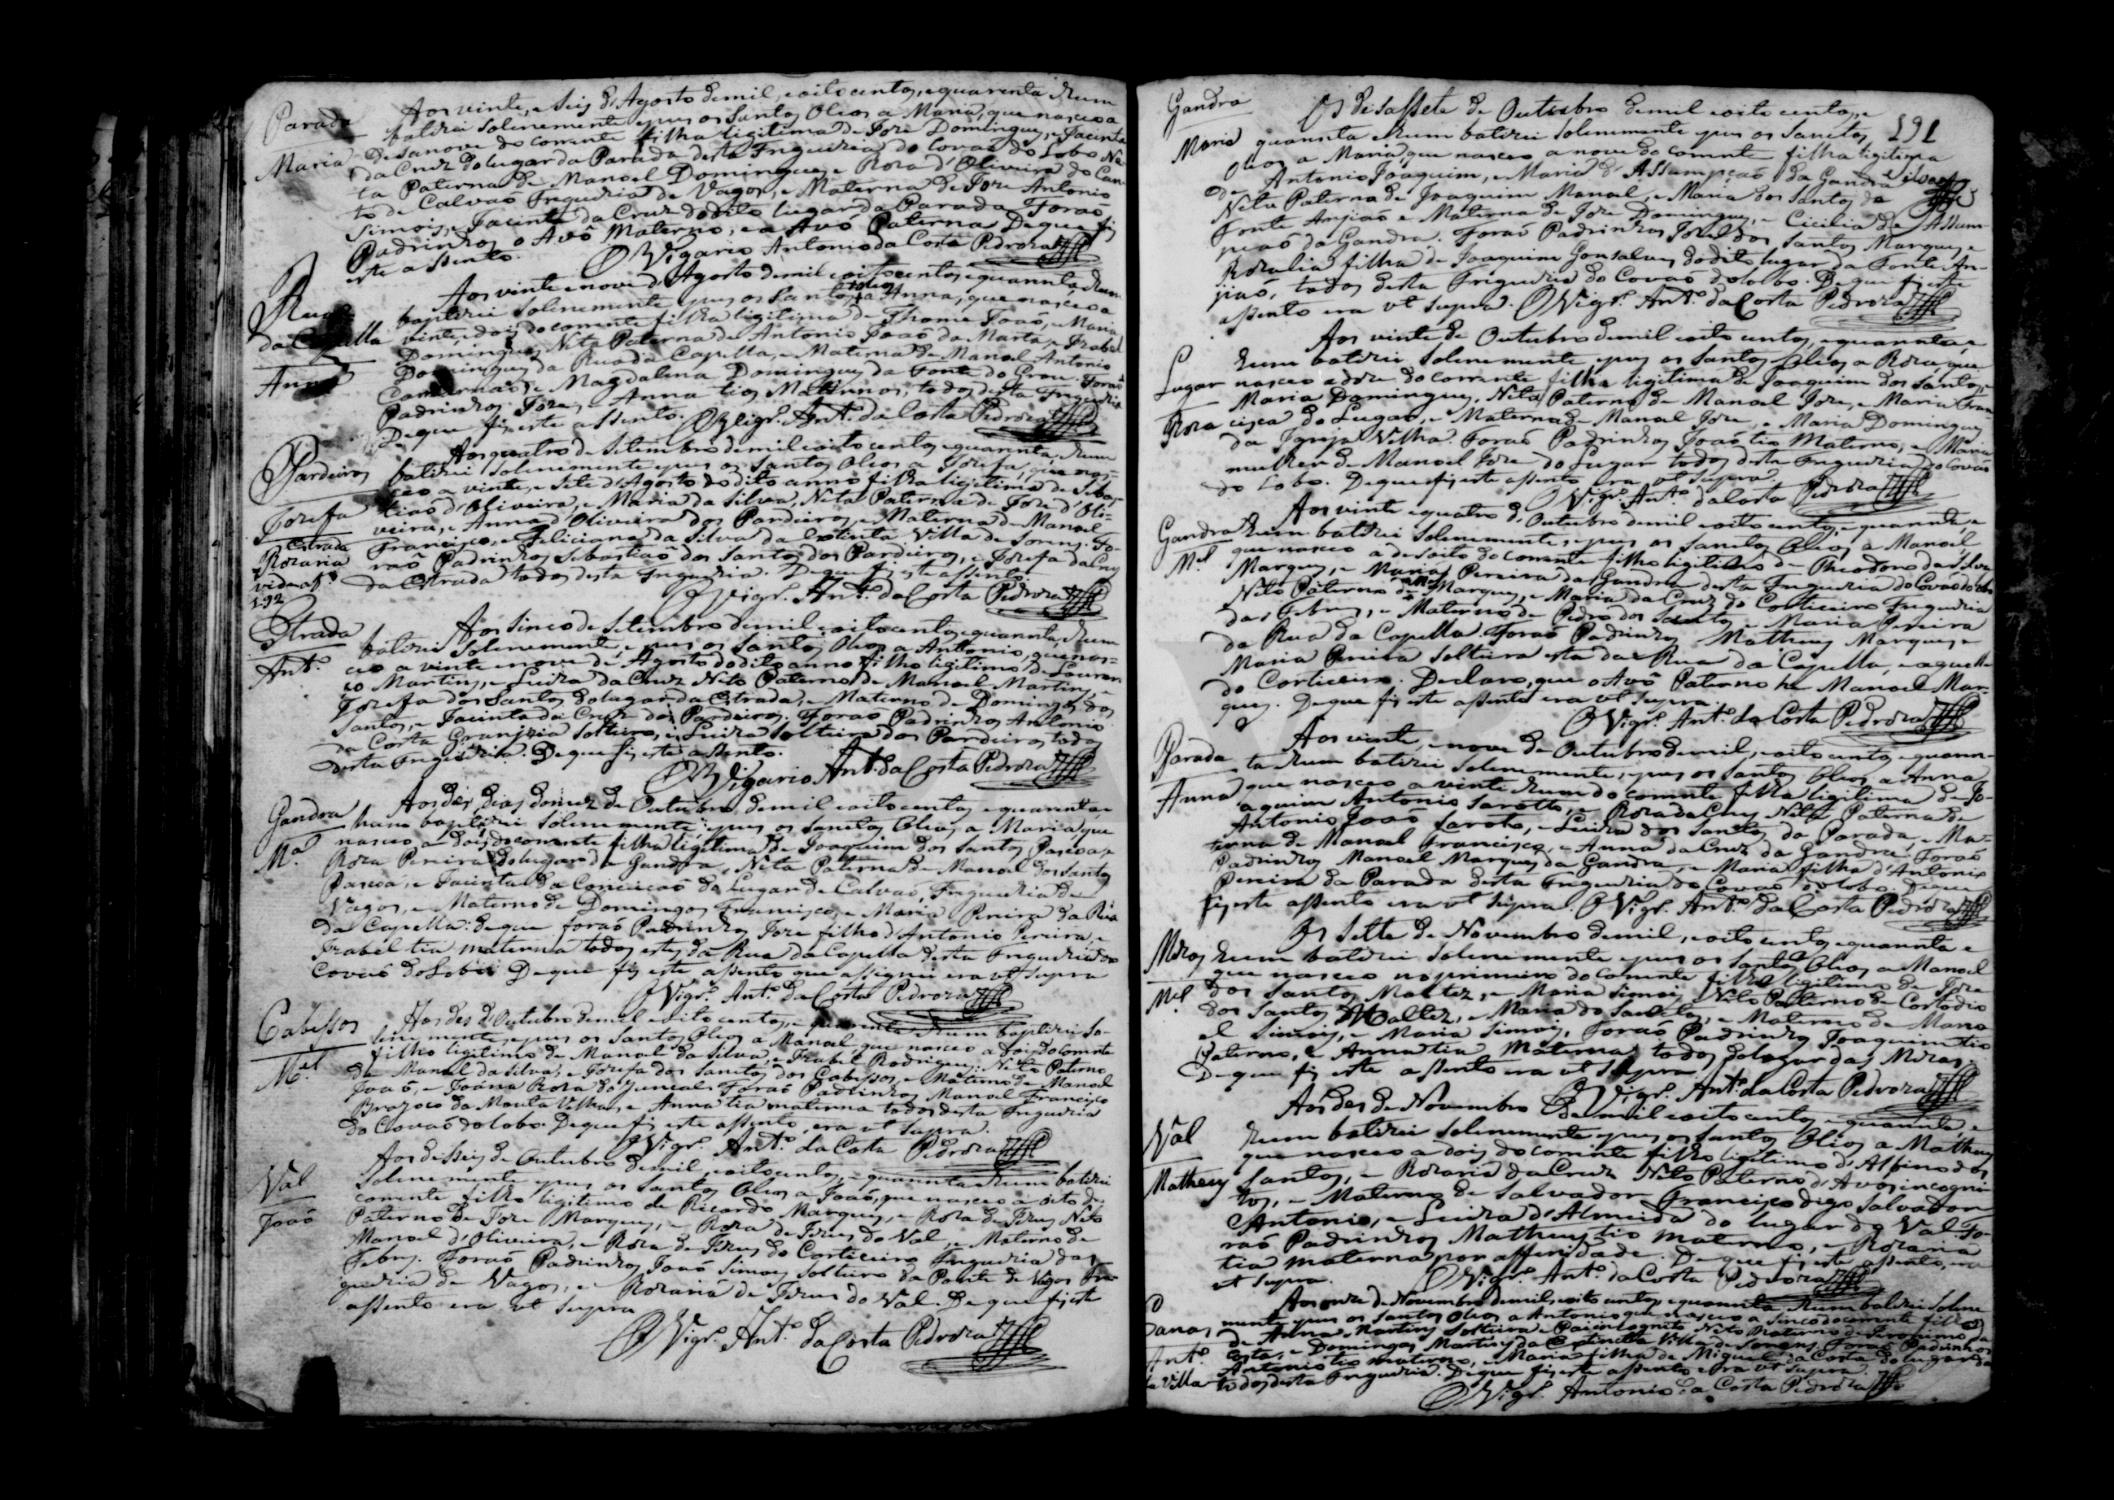 Parada
Maria
Aos vinte, e seis d'Agosto de mil, e oito centos, e quarenta e hum
batizei solenemente e pus os Santos Oleos a Maria, que nasceo a
desanove do corrente filha ligitima de Joze Domingues, e Jacinta
da Cruz do lugar da Parada desta Freguezia do Covaõ do Lobo Ne-
ta Paterna de Manoel Domingues, e Roza d'Oliveira do Can-
to de Calvaõ Freguezia de Vagos, e Materna de Joze Antonio
Simois, e Jacinta da Cruz do dito lugar da Parada. Foraõ
Padrinhos o Avô Materno, e a Avó Paterna. De que fiz
este assento. O Vigario Antonio da Costa Pedroza
Rua
da Capella
Anna
Aos vinte e nove d'Agosto de mil e oito centos, e quarenta e hum
baptizei solenemente e pus os Santos Oleos a Anna, que nasceo a
vinte, e dois do corrente filha ligitima de Thome Joaõ, e Maria
Domingues, Neta Paterna de Antonio Joaõ da Marta, e Izabel
Domingues da Rua da Capella, e Materna de Manoel Antonio
e Magdalena Domingues da Fonte do Grou. Foraõ
Padrinhos Joze, e Anna tios Maternos, todos desta Freguezia
De que fiz este assento. O Vigr.º Ant.º da Costa Pedroza
Pardeiros
Jozefa
Aos quatro de Setembro de mil e oito centos, e quarenta e hum
batizei solenemente e pus os Santos Oleos a Jozefa, que nas-
ceo a vinte, e sete d'Agosto do dito anno filha ligitima de Sebas-
tiaõ d'Oliveira, e Maria da Silva, Neta Paterna de Joze d'Oli-
veira, e Anna d'Oliveira dos Pardeiros, e Materna de Manoel
Francisco, e Feliciana da Silva da Extinta Villa de Sorens. Fo-
raõ Padrinhos Sebastiaõ dos Santos dos Pardeiros, e Jozefa da Cruz
da Estrada todos desta Freguezia. De que fiz este assento
O Vigr.º Ant.º da Costa Pedroza
Estrada
Rozaria
vide af.
192
Estrada
Ant.º
Aos sinco de Setembro de mil e oito centos, e quarenta, e hum
batizei solenemente, e pus os Santos Oleos a Antonio, que nas-
ceo a vinte e nove de Agosto do dito anno filho ligitimo de Louren-
co Martins, e Luiza da Cruz Neto Paterno de Manoel Martins, e
Jozefa dos Santos do lugar da Estrada, e Materno de Domingos dos
Santos, e Jacinta da Cruz dos Pardeiros. Foraõ Padrinhos Antonio
da Costa Granjeia solteiro, e Luiza solteira dos Pardeiros todos
desta Freguezia. De que fiz este assento.
O Vigario Ant.º da Costa Pedroza
Gandra
M.ª
Aos dés dias do mez de Outubro de mil e oito centos, e quarenta, e
hum baptizei solenemente, e pus os Sanctos Oleos, a Maria que
nasceo a dois do corrente filha ligitima de Joaquim dos Santos Pascoa, e
Roza Pereira do lugar da Gandra, Neta Paterna de Manoel dos Santos
Pascoa, e Jacinta da Conceicaõ do Lugar de Calvaõ, Freguezia de
Vagos, e Materno de Domingos Francisco, e Maria Pereira da Rua
da Capella: de que foraõ Padrinhos Joze filho d'Antonio Pereira, e
Izabel tia materna todos estes da Rua da Capella desta Freguezia do
Covaõ do Lobo. De que fiz este assento que assignei era ut supra
O Vigr.º Ant.º da Costa Pedroza
Cabessos
M.el
Aos des d'Outubro de mil e oito centos, e quarenta e hum baptizei So-
lenemente, e pus os Santos Oleos a Manoel que nasceo a dois do corrente
filho ligitimo de Manoel da Silva, e Izabel Rodrigues: Neto Paterno
de Manoel da Silva, e Jozefa dos Sanctos dos Cabessos, e Materno de Manoel
Joaõ, e Joana Roza do Junceal. Foraõ Padrinhos Manoel Francisco
da Mouta Velha, e Anna tia materna todos desta Freguezia
do Covaõ do Lobo. De que fiz este assento, era ut supra.
O Vigr.º Ant.º da Costa Pedroza
Val
Joaõ
Aos desseis de Outubro de mil, e oito centos, e quarenta e hum batizei
solenemente e pus os Santos Oleos a Joaõ, que nasceo a oito do
corrente filho ligitimo de Ricardo Marques, e Roza de Jezus, Neto
Paterno de Joze Marques, e Roza de Jezus do Val, e Materno de
Manoel d'Oliveira, e Roza de Jezus do Corticeiro Freguezia das
Febres. Foraõ Padrinhos Joaõ Simois solteiro da Ponte de Vagos Fre-
guezia de Vagos, e Rozaria de Jezus do Val. De que fiz este
assento era ut supra
O Vigr.º Ant.º da Costa Pedroza
191
Gandra
Maria
Os desassete de Outubro de mil e oito centos, e
quarenta e hum batizei solenemente e pus os Sanctos
Oleos a Maria, que nasceo a nove do corrente filha ligitima
de Antonio Joaquim, e Maria d'Assumpçaõ da Gandra
Neta Paterna de Joaquim Manoel, e Maria dos Santos da
Fonte Anjiaõ e Materna de Joze Domingues, e Cicilia de Assum-
pçaõ da Gandra. Foraõ Padrinhos Joze dos Santos Marques, e
Rozalia filha de Joaquim Gonsalves do dito lugar da Fonte An-
jiaõ, todos desta Freguezia do Covaõ do Lobo. De que fiz este
assento era ut supra. O Vigr.º Ant.º da Costa Pedroza
Lugar
Roza
Aos vinte de Outubro de mil e oito centos, e quarenta, e
hum batizei solenemente e pus os Santos Oleos a Roza, que
nasceo a doze do corrente filha ligitima de Joaquim dos Santos, e
Maria Domingues, Neta Paterna de Manoel Joze, e Maria Fran-
cisca do Lugar, e Materna de Manoel Joze, e Maria Domingues
da Igreja Velha. Foraõ Padrinhos Joaõ tio Materno, e Maria
mulher de Manoel Joze do Lugar todos desta Freguezia do Covaõ
do Lobo. De que fiz este assento era ut supra.
O Vigr.º Ant.º da Costa Pedroza
Gandra
M.el
Aos vinte e quatro d'Outubro de mil e oito centos, e quarenta e
hum batizei solenemente, e pus os Sanctos Oleos a Manoel
que nasceo a desoito do corrente filho ligitimo de Theodoro da Silva
Marques, e Maria Pereira da Gandra desta Freguezia do Covaõ do Lobo
Neto Paterno de Marques, e Maria da Cruz do Corticeiro Freguezia
das Febres, e Materno de Pedro dos Santos e Maria Pereira
da Rua da Capella. Foraõ Padrinhos Matheus Marques, e
Maria Pereira solteira esta da Rua da Capella, e aquelle
do Corticeiro. Declaro, que o Avô Paterno he Manoel Mar-
ques. De que fiz este assento era ut supra.
O Vigr.º Ant.º da Costa Pedroza
Parada
Anna
Aos vinte, e nove de Outubro de mil, e oito centos, e quaren-
ta e hum batizei solenemente, e pus os Santos Oleos a Anna
que nasceo a vinte e hum do corrente filha ligitima de Jo-
aquim Antonio Saroto, e Roza da Cruz Neta Paterna de
Antonio Joaõ Saroto, e Luiza dos Santos da Parada, e Ma-
terna de Manoel Francisco, e Anna da Cruz da Gandra, Foraõ
Padrinhos Manoel Marques da Gandra, e Maria filha d'Antonio
Pereira da Parada desta Freguezia do Covaõ do Lobo. De que
fiz este assento era ut supra. O Vigr.º Ant.º da Costa Pedroza
Mezas
M.el
Os sette de Novembro de mil, e oito centos e quarenta e
hum batizei solenemente e pus os Santos Oleos a Manoel
que nasceo no primeiro do corrente filho ligitimo de Joze
dos Santos Maltez, e Maria Simois, Neto Paterno de Costodio
dos Santos Maltez, e Maria dos Sanctos, e Materno de Mano
el Simois, e Maria Simois, Foraõ Padrinhos Joaquim tio
Paterno, e Anna tia Materna todos do lugar das Mezas.
De que fiz este assento era ut supra
O Vigr.º Ant.º da Costa Pedroza
Val
Matheus
Aos des de Novembro de mil e oito centos, e quarenta, e
hum batizei solenemente, e pus os Santos Oleos a Matheus
que nasceo a dois do corrente filho ligitimo d'Albino dos
Santos, e Rozaria da Cruz Neto Paterno d'Avos incogni
tos, e Materno de Salvador Francisco digo Salvador
Antonio, e Luiza d'Almeida do lugar do Val. Fo-
raõ Padrinhos Matheus tio materno, e Rozaria
tia materna por affinidade. De que fiz este assento, era
ut supra. O Vigr.º Ant.º da Costa Pedroza
Ant.º
da Villa
Aos onze de Novembro de mil, e oito centos, e quarenta, e hum batizei solene
mente e pus os Santos Oleos a Antonio que nasceo a sinco do corrente filho
de Anna Martins solteira e Pai incognito Neto Materno de Jeronimo da
Costa, e Domingas Martins da Extincta Villa de Sorens. Foraõ Padrinhos
Antonio tio materno, e Maria filha de Miguel da Costa do lugar da
todos desta Freguezia. De que fiz este assento era ut supra.
O Vigr.º Antonio da Costa Pedroza